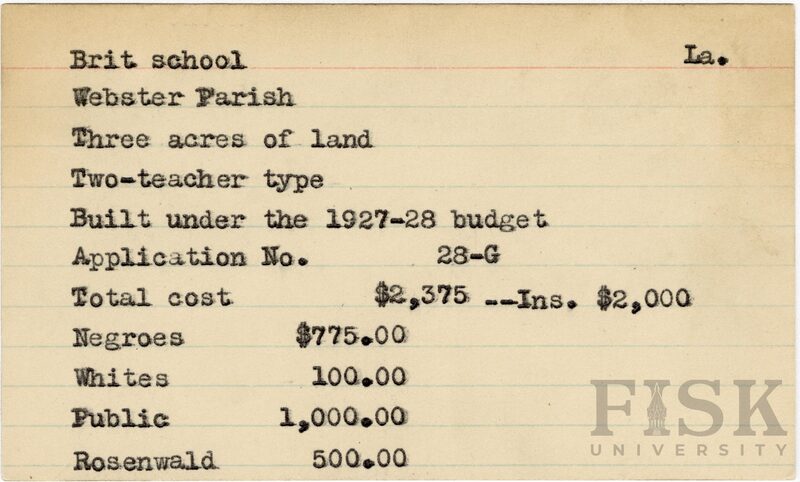 Brit school La.
Webster Parish
Three acres of land
Two-teacher type
Built under the 1927-28 budget
Application No. 28-G
Total cost $2,375 --Ins. $2,000
Negroes $775.00
Whites 100.00
Public 1,000.00
Rosenwald 500.00
FISK
UNIVERSITY